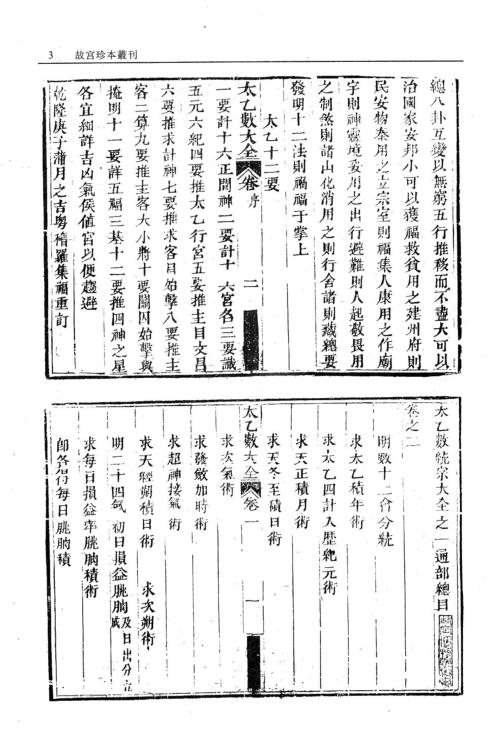 3 故宮珍本叢刊
總八卦互變以無窮五行推移而不盡大可以
治國家安邦小可以獲福救貧用之建州府則
民安物泰用之立宗室則福集人康用之作廟
宇則神靈境妥用之出行避難則人起敬畏用
之制煞則諸山化消用之則行舍諸則藏總要
發明十二法則禍福于掌上
太乙十二要
太乙數大全 卷序 二
一要計十六正間神二要計十六宮名三要識
五元六紀四要推太乙行宮五要推主目文昌
六要推求計神七要推求客目始擊八要推主
客二算九要推主客大小將十要關囚始擊與
掩明十一要詳五福三基十二要推四神之星
各宜細詳吉凶氣侯值宮以便趨避
乾隆庚子蒲月之吉粵稽羅集福重訂
太乙數統宗大全之一通部總目
卷之一
明數十二會分統
求太乙積年術
求太乙四計人歷紀元術
求天正積月術
求天冬至積日術
太乙數大全 卷一 一
求次氣術
求發斂加時術
求超神接氣術
求天經朔積日術 求次朔術
明二十四氣初日損益朓朒及日出分立成
求每日損益率朓朒積術
即各得每日朓朒積